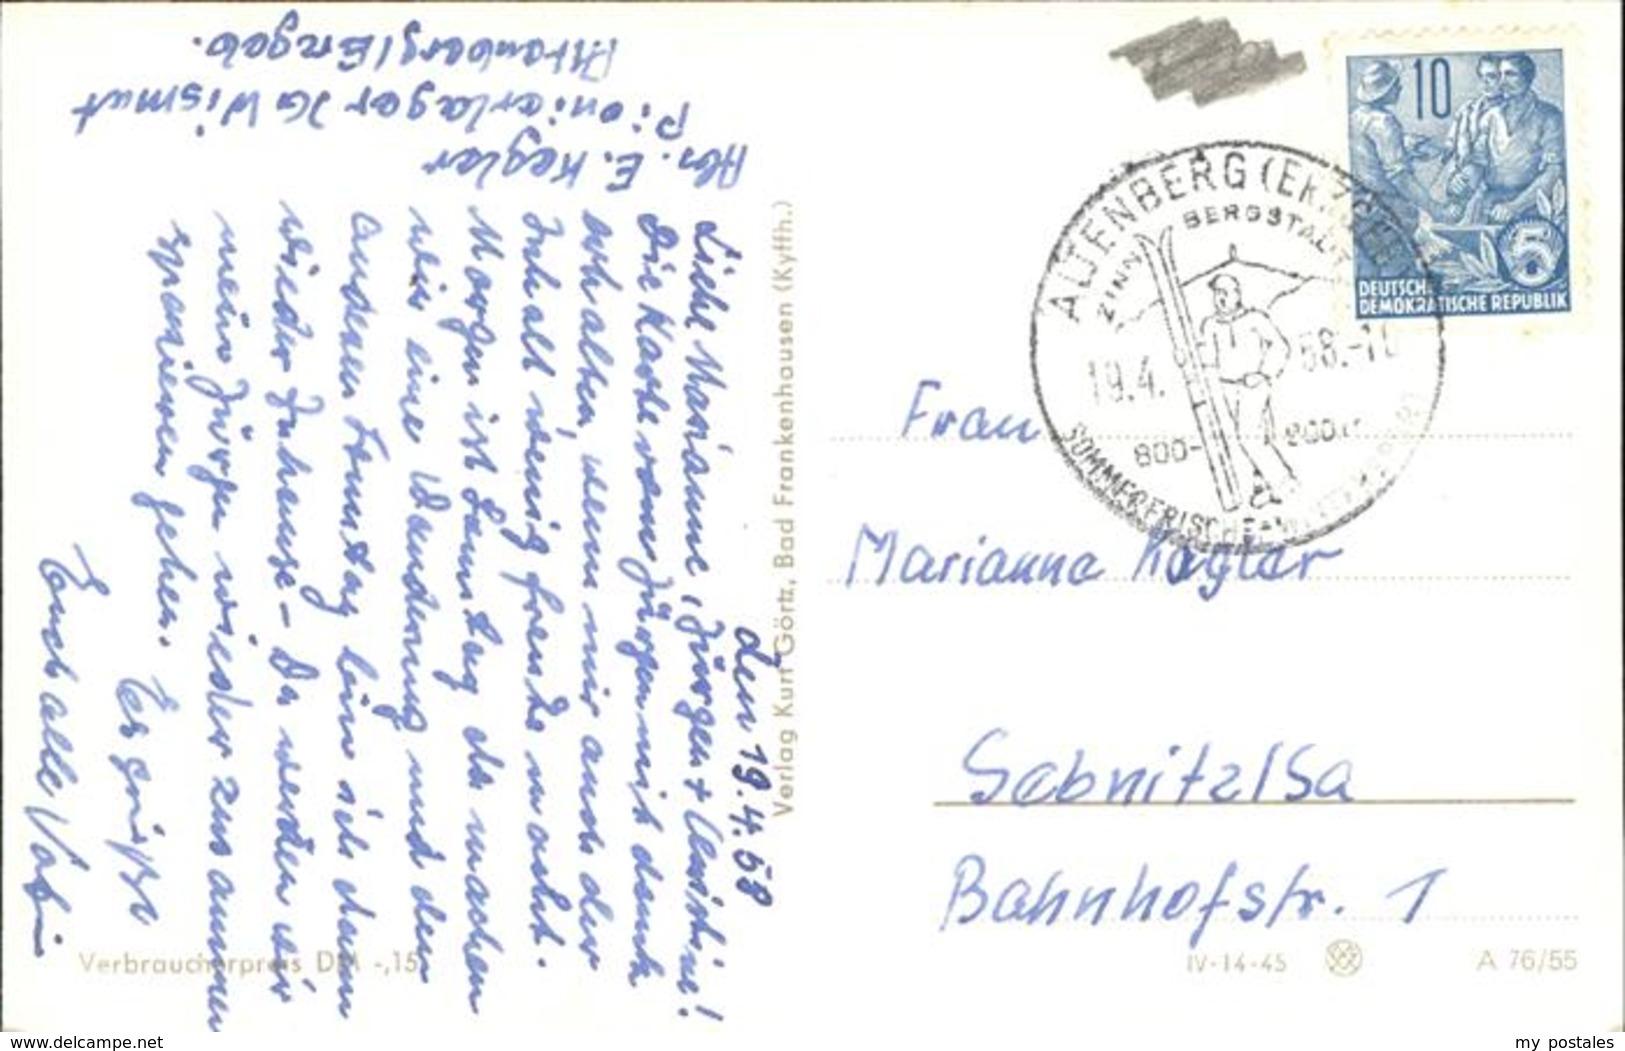 Abs. E. Kegler
Pionierlager IG Wismut
Altenberg/Erzgeb.
den 19.4.58
Liebe Marianne, Jürgen +
Die Karte vom Jürgen mit dank
erhalten, wenn mir auch der
Inhalt wenig freude macht.
Morgen ist Sonntag da machen
wir eine Wanderung und den
anderen Sonntag bin ich dann
wieder zuhause - Da werden wir
mein Jürgen wieder zusammen
spazieren gehen.
Es grüßt
Euch alle Vati
Verlag Kurt Görtz, Bad Frankenhausen (Kyffh.)
10
5
DEUTSCHE
DEMOKRATISCHE REPUBLIK
ALTENBERG (ERZGEB)
ZINN BERGSTADT
19.4. 58.-10
800- 900m
SOMMERFRISCHE-
Frau
Marianne Kegler
Sebnitz/Sa
Bahnhofstr. 1
Verbraucherpreis DM -,15
IV-14-45
A 76/55
www.delcampe.net
my_postales